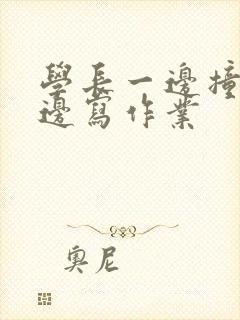 學長一邊撞
邊寫作業
奧尼